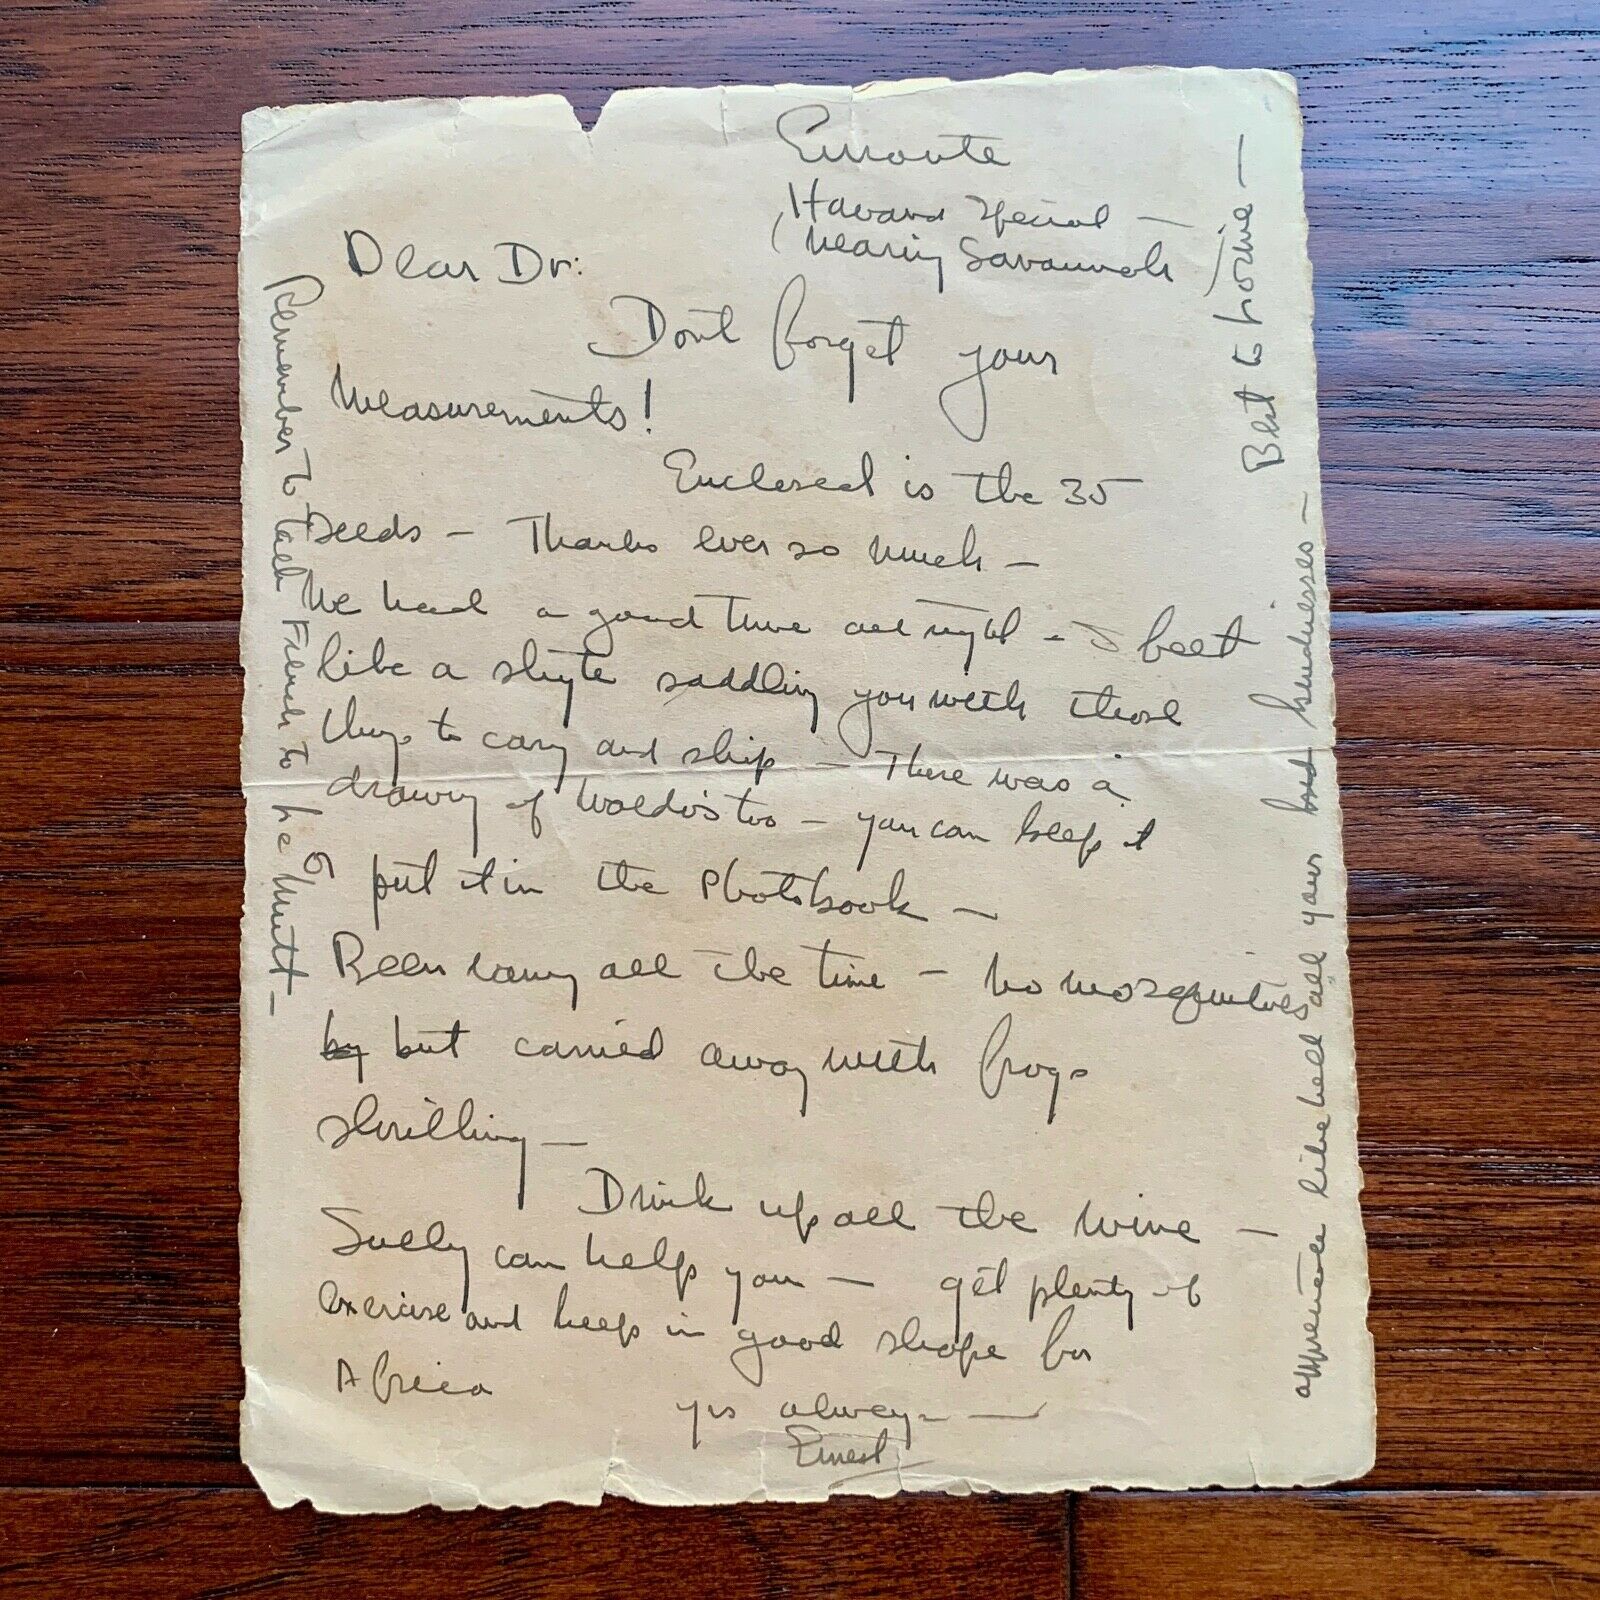 Enroute
Havana Special —
(Nearing Savannah)
Dear Dr:
Dont forget your
Measurements!
Enclosed is the 35
seeds — Thanks ever so much —
We had a good time all right — I feel
like a shyte saddling you with those
things to carry and ship — There was a
drawing of Waldo's too — you can keep it
or put it in the Photobook —
Been rainy all the time — no mosquitoes
by but carried away with frogs
shrilling —
Drink up all the wine —
Sully can help you — get plenty of
exercise and keep in good shape for
Africa
yrs always —
Ernest
Remember to talk French to the Mutt —
appreciate like hell all your kindnesses —
Best to Lorine —